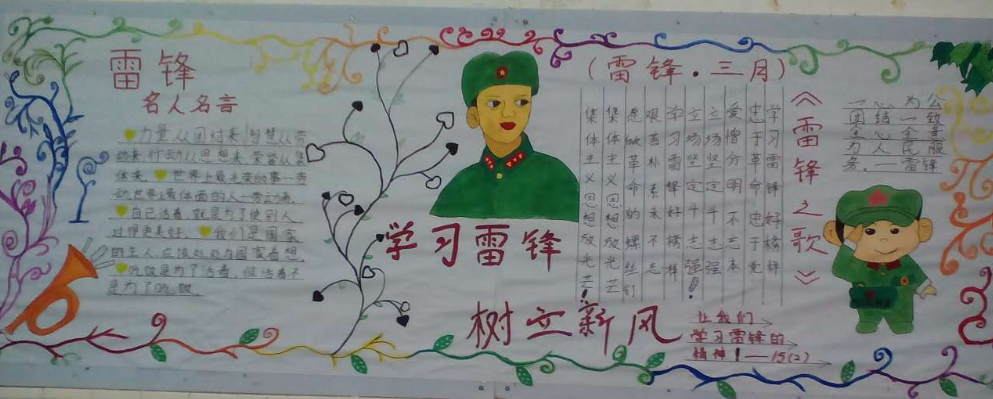 雷锋
名人名言
力量从团结来,智慧从劳
动来,行动从思想来,荣誉从集
体来。世界上最光荣的事—劳
动。世界上最体面的人—劳动者。
自己活着,就是为了使别人
过得更美好。我们是国家
的主人,应该处处为国家着想
吃饭是为了活着,但活着不
是为了吃饭。
学习雷锋
树立新风
(雷锋·三月)
《雷锋之歌》
学习雷锋好榜样
忠于革命忠于党
爱憎分明不忘本
立场坚定斗志强
立场坚定斗志强!
学习雷锋好榜样
艰苦朴素永不忘
愿做革命的螺丝钉
集体主义思想放光芒
集体主义思想放光芒!
一心为公
团结一致
全心全意
为人民服
务。—雷锋
让我们
学习雷锋的
精神!—15(2)